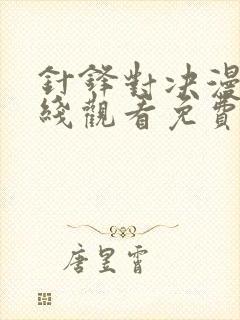 針鋒對決漫
綫觀看免費
唐昱霄